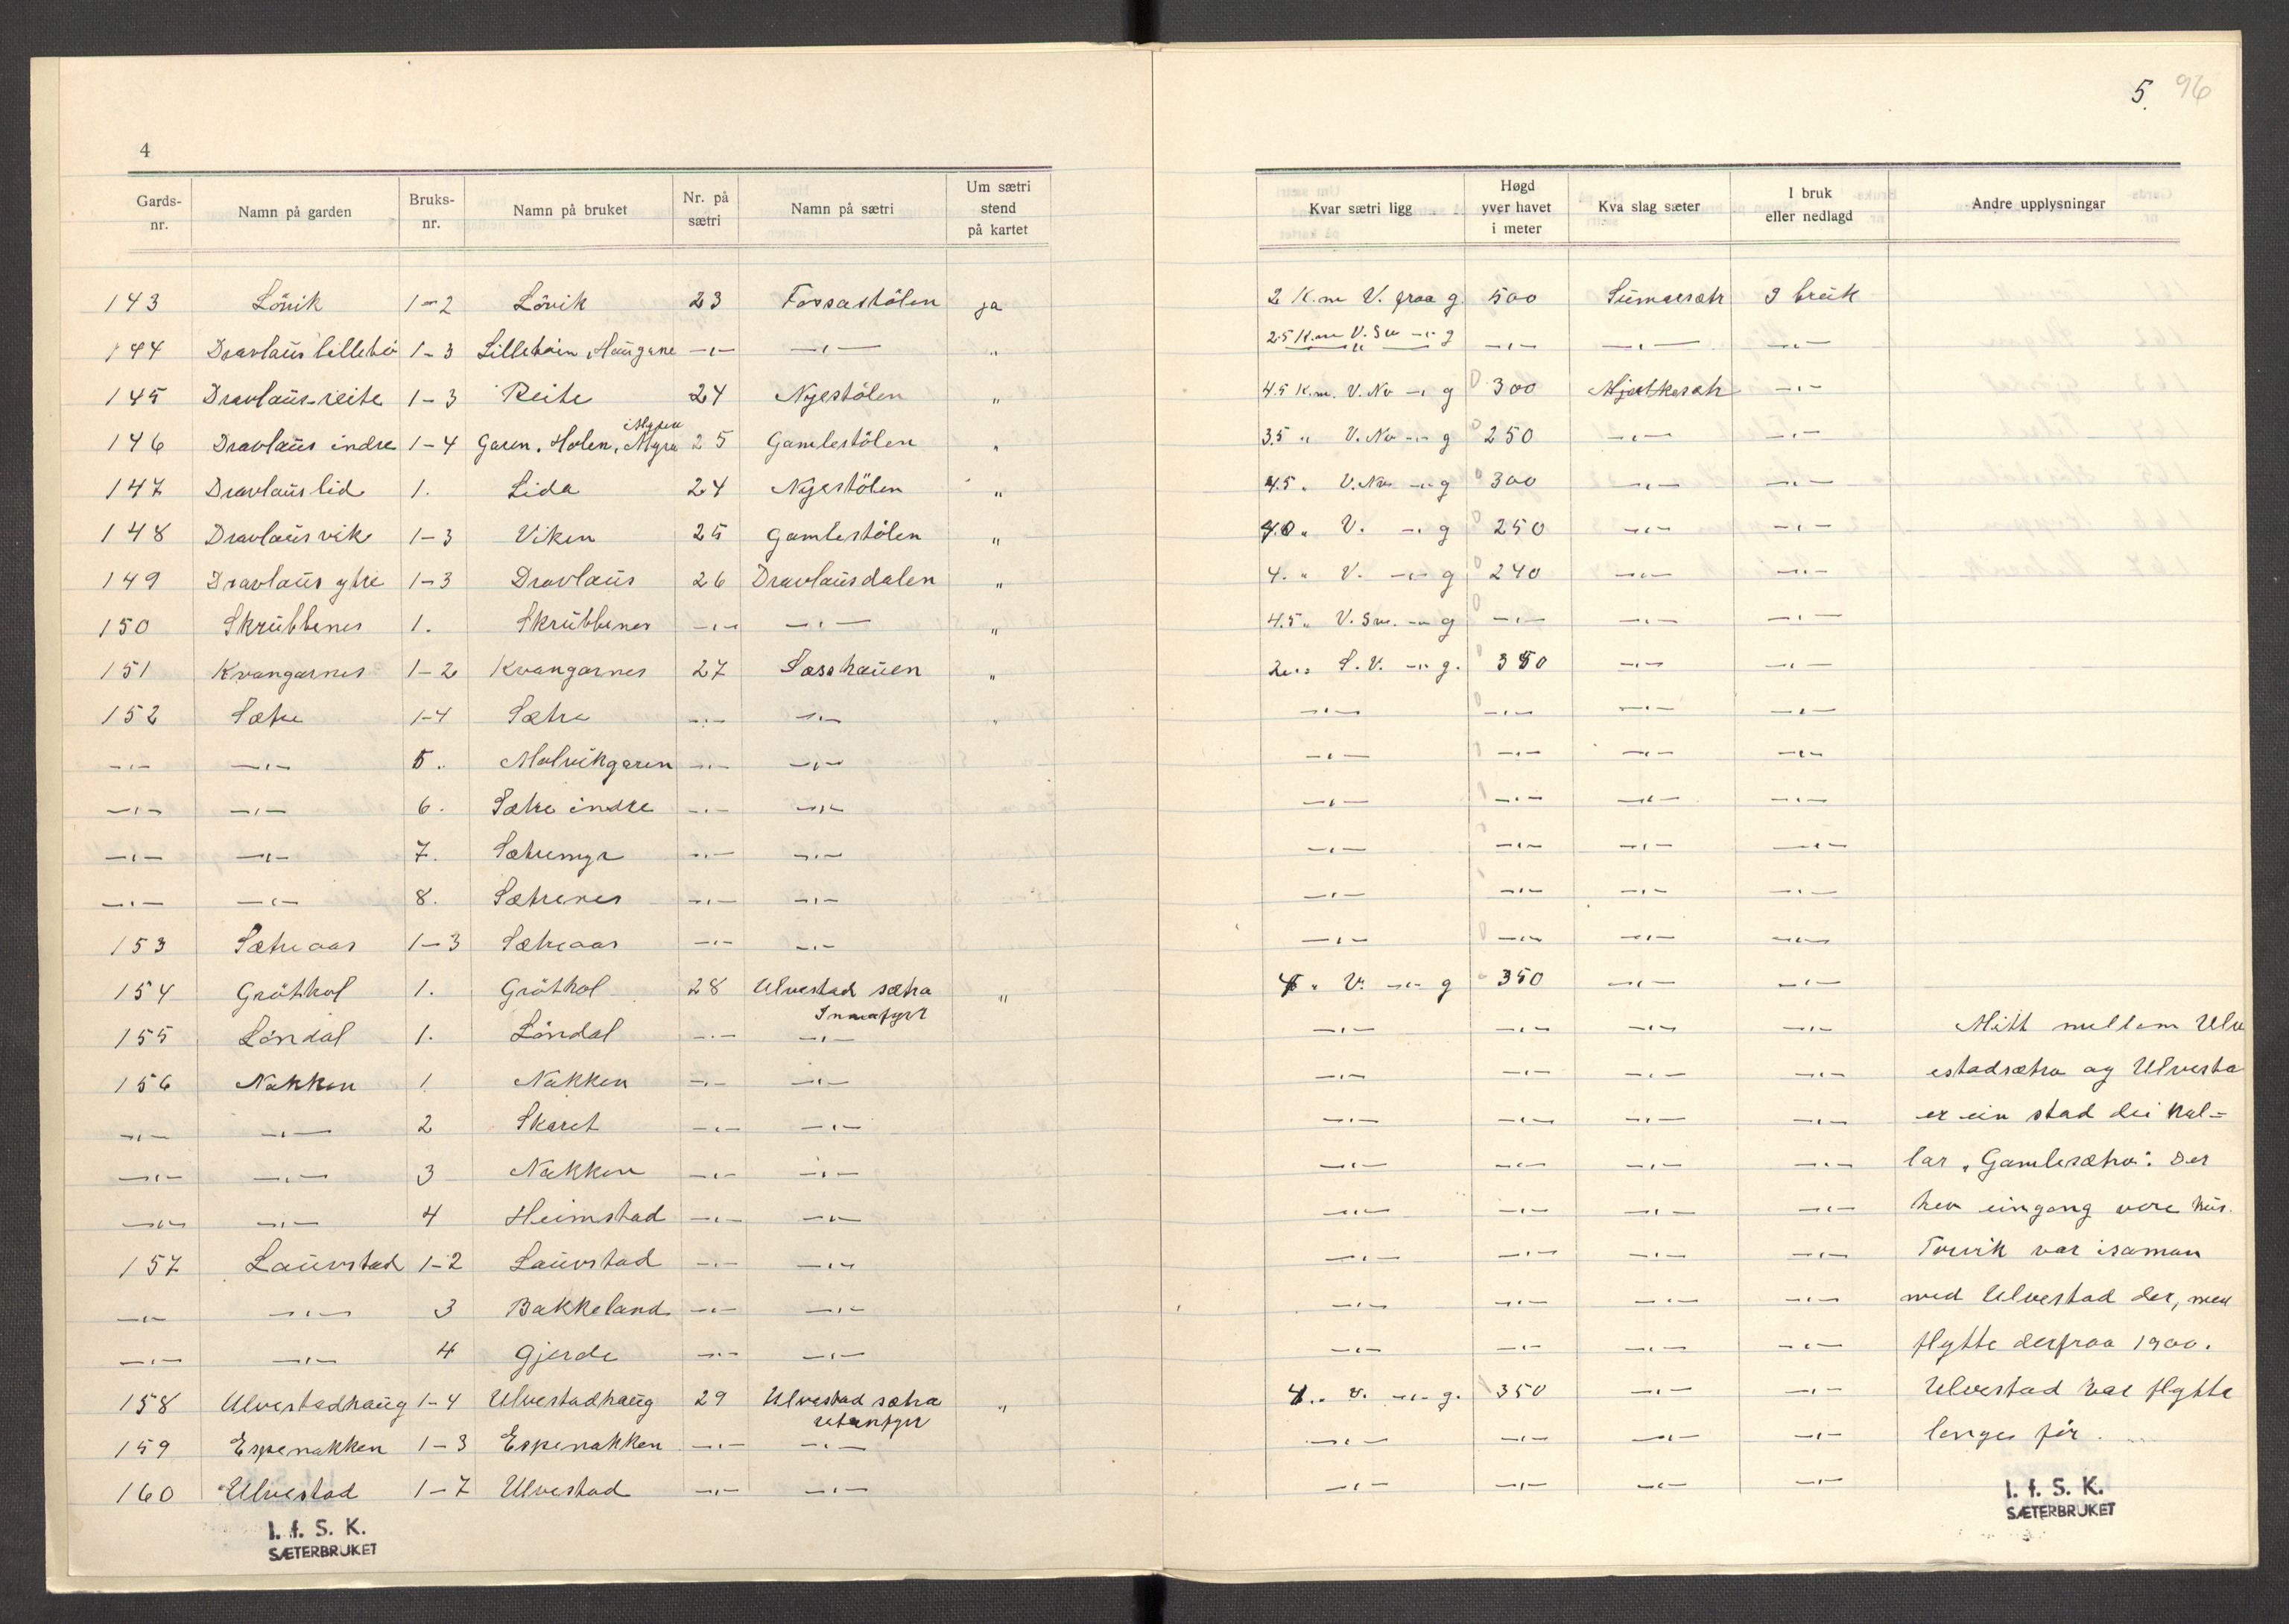 4
5. 96
Gards-nr. Namn på garden Bruks-nr. Namn på bruket Nr. på sætri Namn på sætri Um sætri stend på kartet Kvar sætri ligg Høgd yver havet i meter Kva slag sæter I bruk eller nedlagd Andre upplysningar
143 Lövik 1-2 Lövik 23 Fossastölen ja 2 K.m V. fraa g. 500 Sumarsætr I bruk
144 Dravlaus lillebö 1-3 Lilleböin, Haugane -"- -"- " 2.5 K.m V. Sv -"- g -"- -"- -"-
145 Dravlaus-reite 1-3 Reite 24 Nyestölen " 4.5 K.m. V. Nv -"- g 300 Mjølkesætr -"-
146 Dravlaus indre 1-4 Garen, Holen, Myra 25 Gamlestölen " 3.5 " V. Nv -"- g 250 -"- -"-
147 Dravlaus lid 1. Lida 24 Nyestölen " 4.5 " V. Nv -"- g 300 -"- -"-
148 Dravlausvik 1-3 Viken 25 Gamlestölen " 4.0 " V. -"- g 250 -"- -"-
149 Dravlaus ytre 1-3 Dravlaus 26 Dravlausdalen " 4. " V. -"- g 240 -"- -"-
150 Skrubbenes 1. Skrubbenes -"- -"- " 4.5 " V. Sv. -"- g -"- -"- -"-
151 Kvangarnes 1-2 Kvangarnes 27 Sasshauen " 2 " S.V. -"- g. 350 -"- -"-
152 Sætre 1-4 Sætre -"- -"- " -"- -"- -"- -"-
-"- -"- 5. Molvikgaren -"- -"- -"- -"- -"- -"-
-"- -"- 6. Sætre indre -"- -"- -"- -"- -"- -"-
-"- -"- 7. Sætremyr -"- -"- -"- -"- -"- -"-
-"- -"- 8. Sætrenes -"- -"- -"- -"- -"- -"-
153 Sætreaas 1-3 Sætreaas -"- -"- -"- -"- -"- -"-
154 Gröthol 1. Gröthol 28 Ulvestad sætra Innafyre " 4 " V. -"- g 350 -"- -"-
155 Löndal 1. Löndal -"- -"- -"- -"- -"- -"- Mitt mellem Ulv
156 Nakken 1 Nakken -"- -"- -"- -"- -"- -"- estadsætra og Ulvesta
-"- -"- 2 Skaret -"- -"- -"- -"- -"- -"- er ein stad dei kal-
-"- -"- 3 Nakken -"- -"- -"- -"- -"- -"- lar "Gamlesætra". Der
-"- -"- 4 Heimstad -"- -"- -"- -"- -"- -"- hev eingong vore hus.
157 Lauvstad 1-2 Lauvstad -"- -"- -"- -"- -"- -"- Torvik var isaman
-"- -"- 3 Bakkeland -"- -"- -"- -"- -"- -"- med Ulvestad der, men
-"- -"- 4 Gjerde -"- -"- -"- -"- -"- -"- flytte derfraa 1900.
158 Ulvestadhaug 1-4 Ulvestadhaug 29 Ulvestad sætra utanfyre " 4 " V. -"- g. 350 -"- -"- Ulvestad var flytte
159 Espenakken 1-3 Espenakken -"- -"- -"- -"- -"- -"- lenger för.
160 Ulvestad 1-7 Ulvestad -"- -"- -"- -"- -"- -"-
I. f. S. K.
SÆTERBRUKET
I. f. S. K.
SÆTERBRUKET